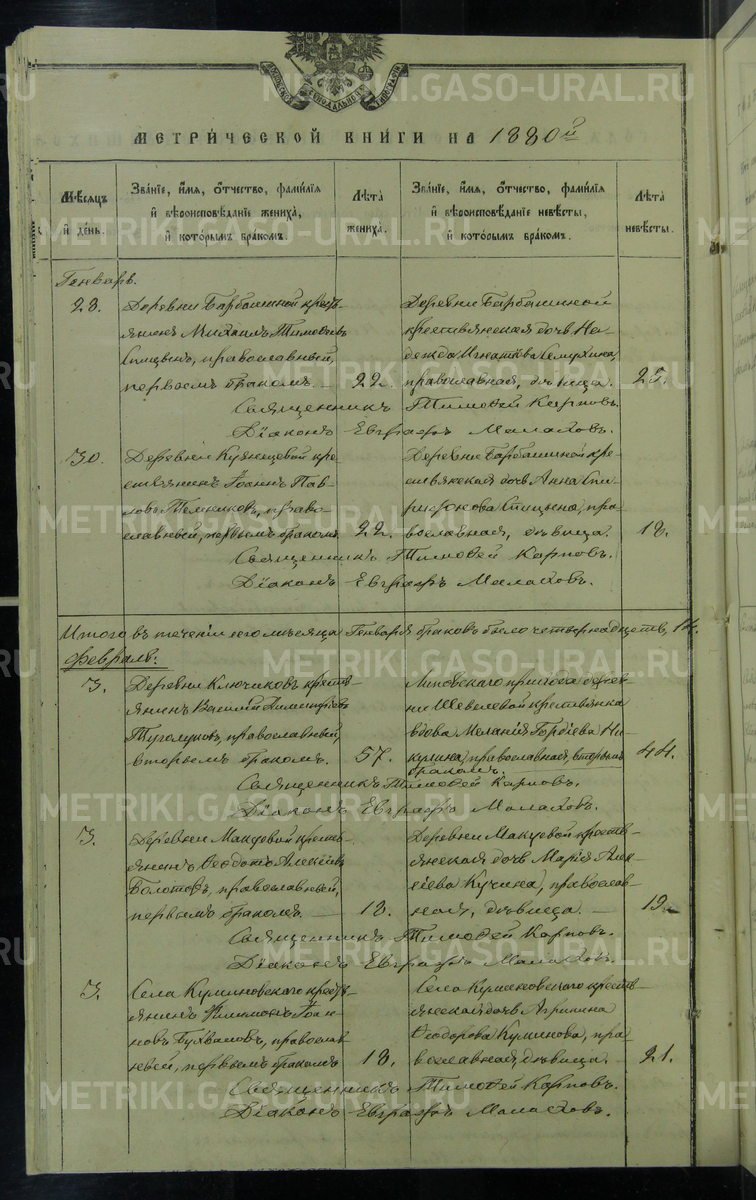 METRIKI.GASO-URAL.RU
МЕТРИ́ЧЕСКОЙ КНИ́ГИ НА 1880й
Мѣсяцъ и҆ де́нь.
Зва́нїе, и҆́мя, ѻ҆́тчество, фами́лїя и҆ вѣроисповѣ́данїе жениха̀, и҆ кото́рымъ бра́комъ.
Лѣта̀ жениха̀.
Зва́нїе, и҆́мя, ѻ҆́тчество, фами́лїя и҆ вѣроисповѣ́данїе невѣ́сты, и҆ кото́рымъ бра́комъ.
Лѣта̀ невѣ́сты.
Генварь.
23.
Деревни Барбашиной кресть-
янинъ Михаилъ Тимоѳеевъ
Спицынъ, православный,
первымъ бракомъ.
22.
Деревни Барбашиной
крестьянская дочь На-
дежда Игнатьева
православная, дѣвица.
Священникъ Тимоѳей Карповъ.
Діаконъ Евграфъ Малаховъ.
30.
Деревни Кузнецовой кре-
стьянинъ Іоаннъ Пав-
ловъ право-
славный, первымъ бракомъ.
22.
Деревни Барбашиной кре-
стьянская дочь Анна Спи-
ридонова Спицына, пра-
вославная, дѣвица.
18.
Священникъ Тимоѳей Карповъ.
Діаконъ Евграфъ Малаховъ.
Итого въ теченіи сего мѣсяца Генваря браковъ было четырнадцать, 14.
Февраль.
3.
Деревни Ключиковъ кресть-
янинъ Василій Димитріевъ
Туголуковъ, православный,
вторымъ бракомъ.
57.
Липовскаго прихода дерев-
ни Шевелевой крестьянка
вдова Меланія Гордіева Ни-
кулина, православная, вторымъ
бракомъ.
44.
Священникъ Тимоѳей Карповъ.
Діаконъ Евграфъ Малаховъ.
3.
Деревни Макцевой кресть-
янинъ Ѳеодотъ Алексѣевъ
Болотовъ, православный,
первымъ бракомъ.
18.
Деревни Макцевой кресть-
янская дочь Марія Алек-
сіева Кучина, православ-
ная, дѣвица.
19.
Священникъ Тимоѳей Карповъ.
Діаконъ Евграфъ Малаховъ.
3.
Села Куминовскаго кресть-
янинъ Филимонъ Іоан-
новъ православ-
ный, первымъ бракомъ
18.
Села Куминовскаго кресть-
янская дочь Агрипина
Ѳеодорова Куминова, пра-
вославная, дѣвица.
21.
Священникъ Тимоѳей Карповъ.
Діаконъ Евграфъ Малаховъ.